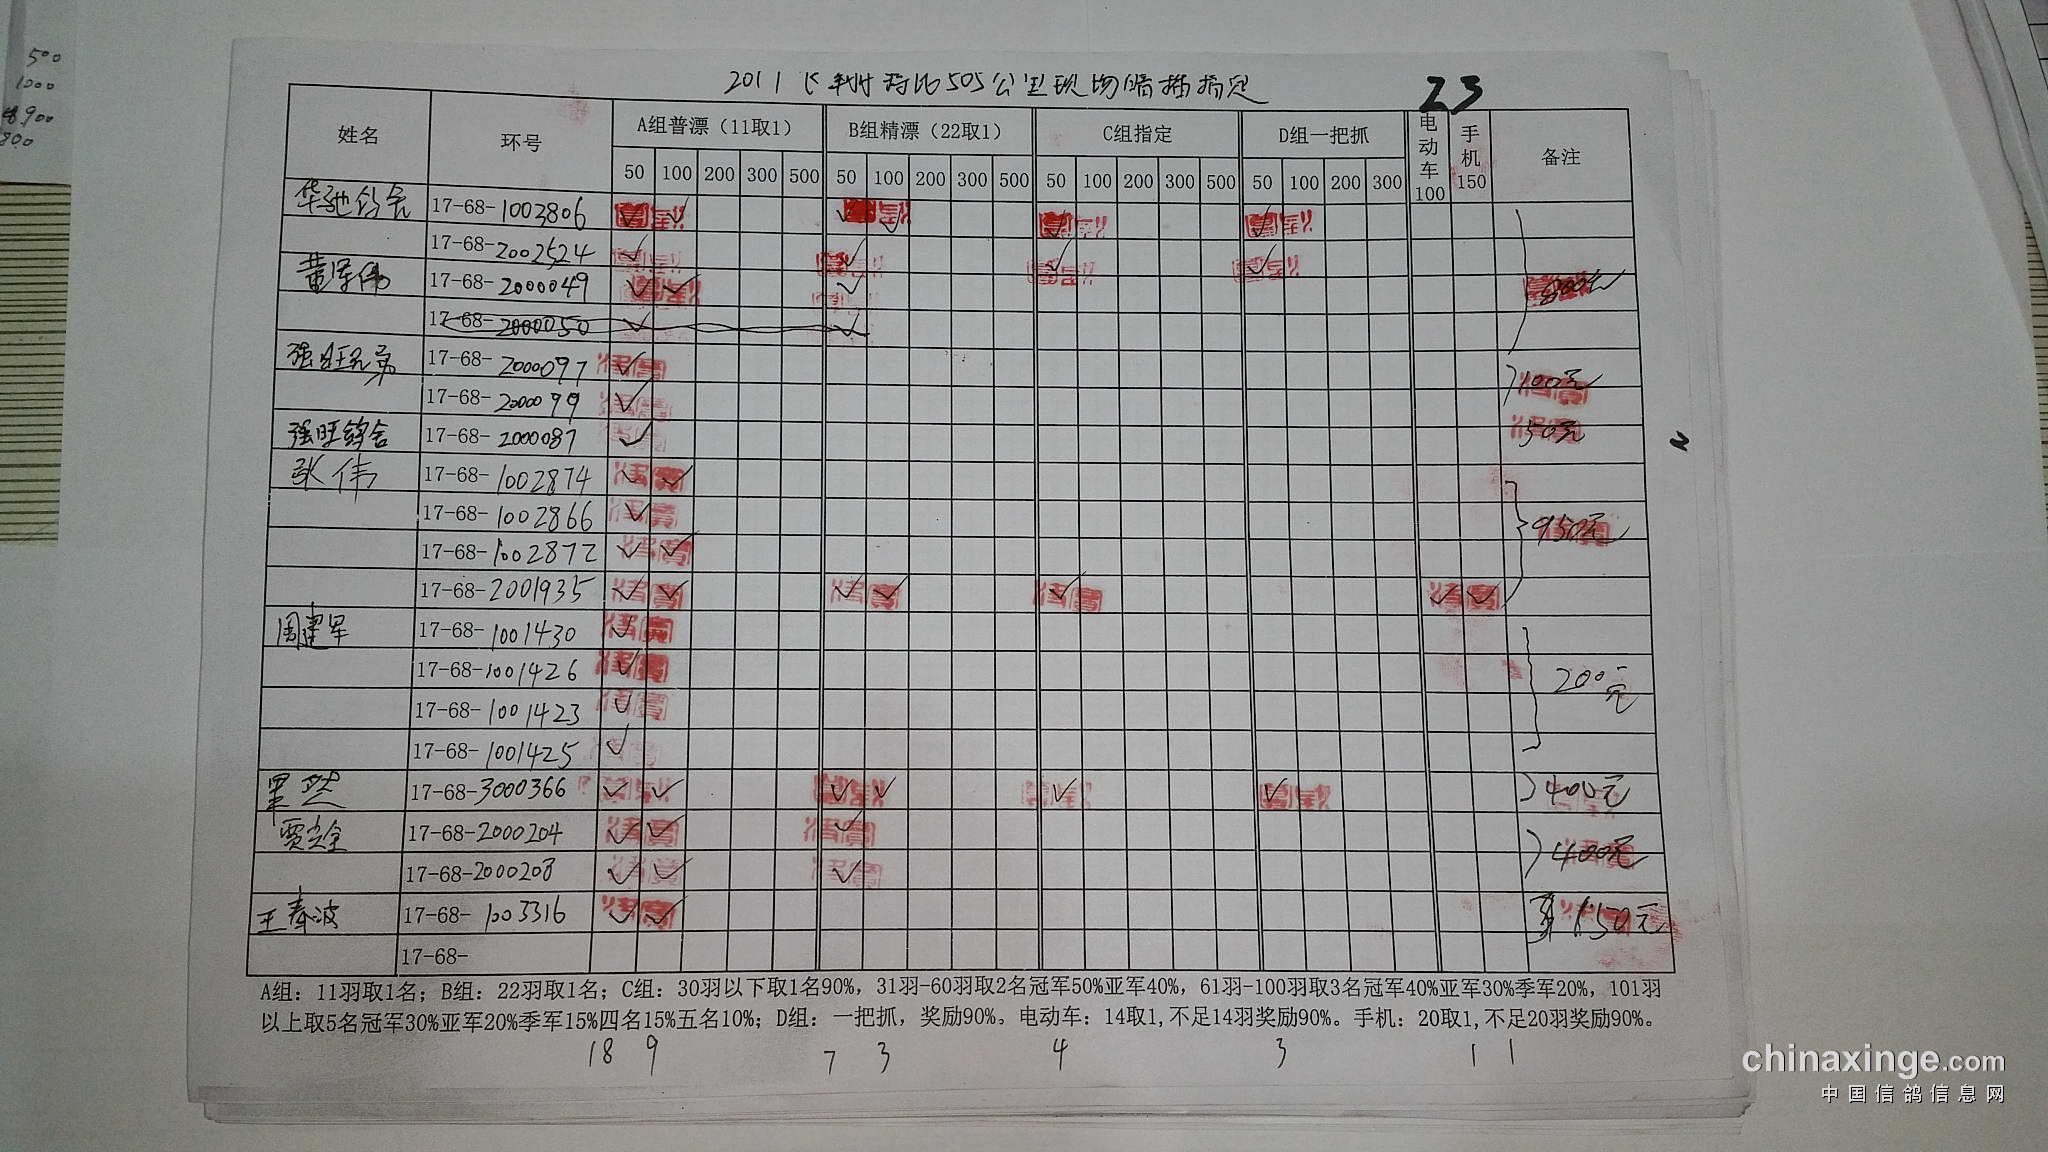 500
1000
900
800
2011 505公里现场暗插指定
23
姓名 环号 A组普漂（11取1） B组精漂（22取1） C组指定 D组一把抓 电动车100 手机150 备注
50 100 200 300 500 50 100 200 300 500 50 100 200 300 500 50 100 200 300
华驰鸽舍 17-68-1003806 ✓ ✓ ✓ ✓ ✓ ✓
17-68-2002524 ✓ ✓ ✓ ✓
黄军伟 17-68-2000049 ✓ ✓ ✓ 800元
17-68-2000050 ✓ ✓
强旺兄弟 17-68-2000097 ✓ 100元
17-68-2000099 ✓
强旺鸽舍 17-68-2000087 ✓ 50元
2
张伟 17-68-1002874 ✓ ✓
17-68-1002866 ✓ 950元
17-68-1002872 ✓ ✓
17-68-2001935 ✓ ✓ ✓ ✓ ✓ ✓ ✓
周建军 17-68-1001430 ✓
17-68-1001426 ✓ 200元
17-68-1001423 ✓
17-68-1001425 ✓
17-68-3000366 ✓ ✓ ✓ ✓ ✓ ✓ 400元
贾全 17-68-2000204 ✓ ✓ ✓ 400元
17-68-2000208 ✓ ✓ ✓
王春波 17-68-1003316 ✓ ✓ 150元
17-68-
A组：11羽取1名；B组：22羽取1名；C组：30羽以下取1名90%，31羽-60羽取2名冠军50%亚军40%，61羽-100羽取3名冠军40%亚军30%季军20%，101羽
以上取5名冠军30%亚军20%季军15%四名15%五名10%；D组：一把抓，奖励90%。电动车：14取1,不足14羽奖励90%。手机：20取1,不足20羽奖励90%。
18 9 7 3 4 3 1 1
chinaxinge.com
中国信鸽信息网